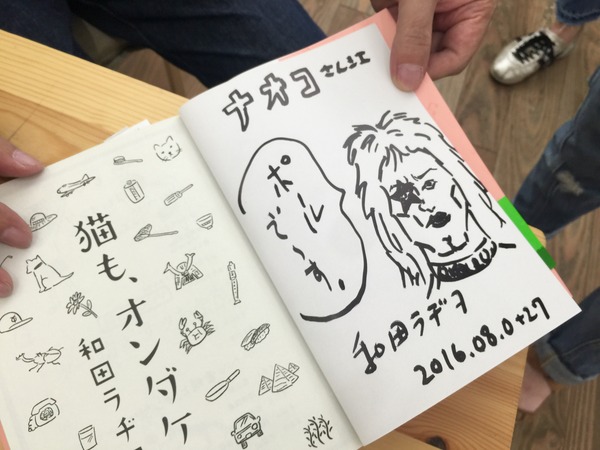 ナオコさん江
ポール
で〜す。
和田ラヂヲ
2016.08.0+27
猫も、オンダケ
和田ラヂ